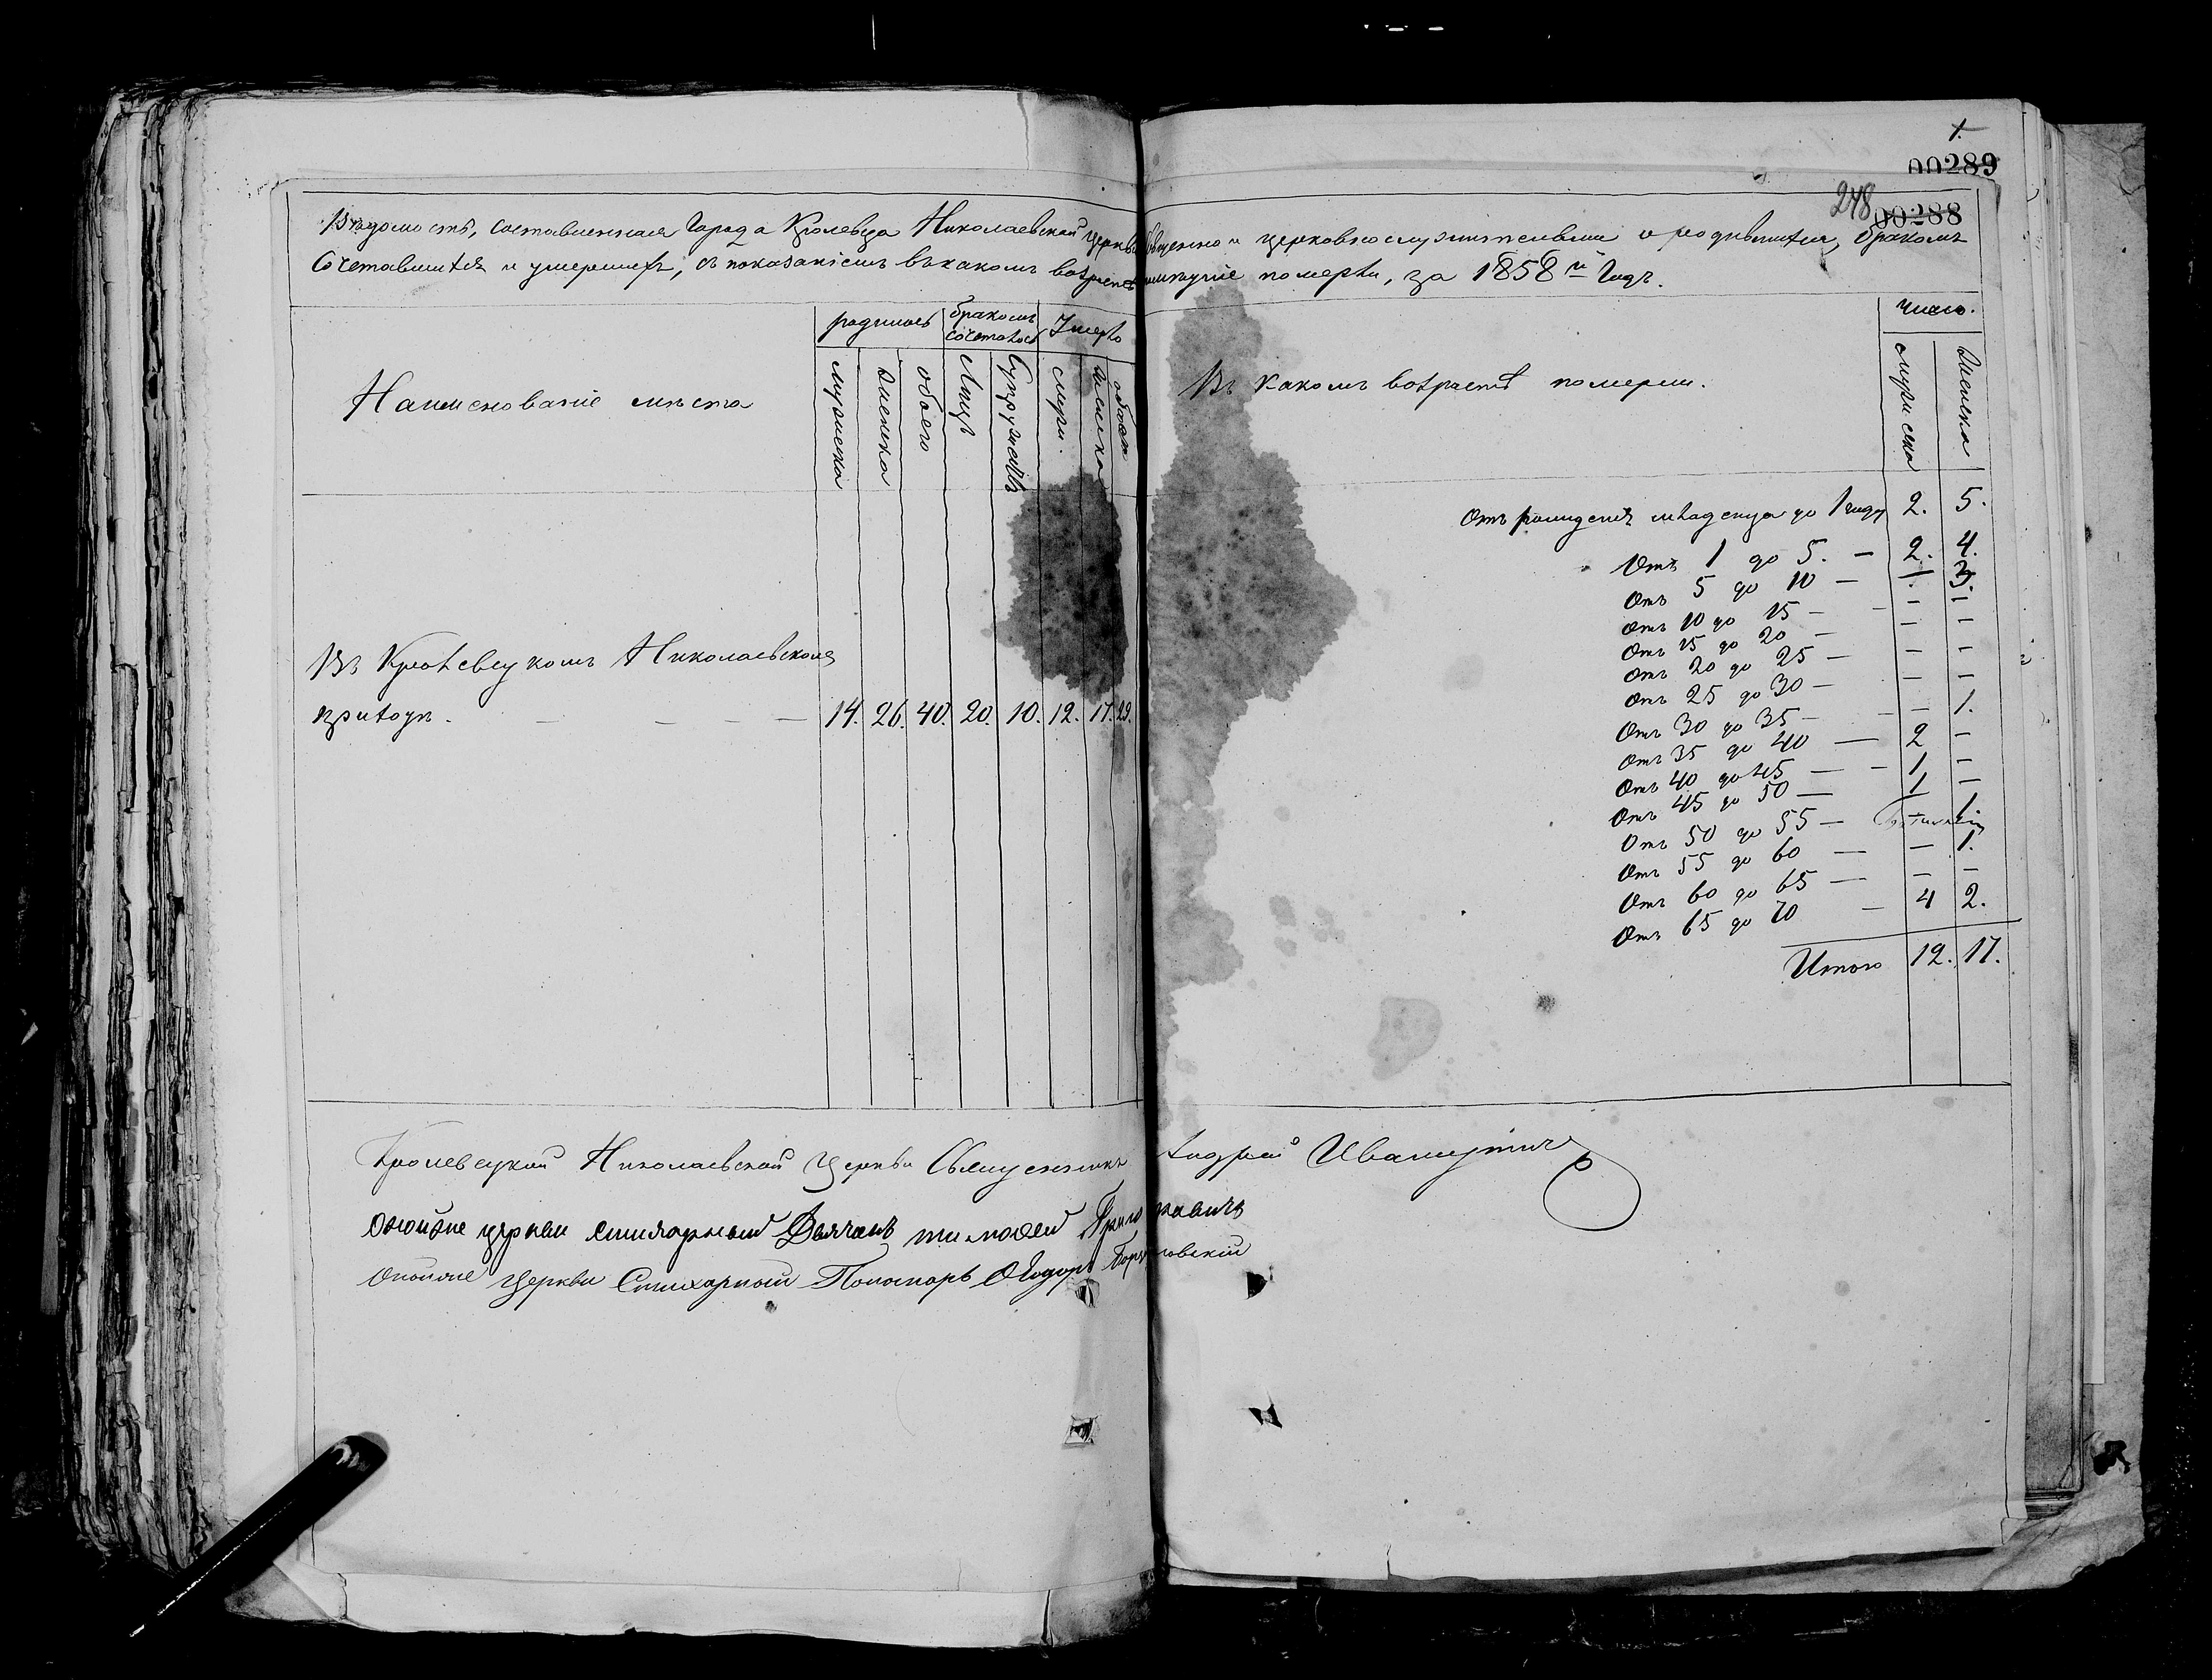 1.
00289
248
00288
Вѣдомость, составленная Города Кролевца Николаевской церкви Священно и церковнослужительми о родившихся, бракомъ
Сочетавшихся и умершихъ, съ показаніемъ въ какомъ возрастѣ померли, за 1858й Годъ.
Наименованіе мѣста
родилось
бракомъ сочеталось
Умерло
мужеска
женска
обоего
Лицъ
Супружествъ
муж.
женска
обоего
Въ какомъ возрастѣ померли.
число.
мужеска
женска
Отъ рожденія младенца до 1 году 2. 5.
Отъ 1 до 5. — 2. 4.
Отъ 5 до 10 — — 3.
Отъ 10 до 15 — — —
Отъ 15 до 20 — — —
Отъ 20 до 25 — — —
Отъ 25 до 30 — — —
Отъ 30 до 35 — — 1.
Отъ 35 до 40 — 2 —
Отъ 40 до 45 — 1 —
Отъ 45 до 50 — 1 —
Отъ 50 до 55 — — 1.
Отъ 55 до 60 — — 1.
Отъ 60 до 65 — — —
Отъ 65 до 70 — 4 2.
Итого 12. 17.
Въ Кролевецкомъ Николаевскомъ
приходѣ. — — — — 14. 26. 40. 20. 10. 12. 17. 29.
Кролевецкой Николаевской Церкви Священникъ Андрей
Онойже церкви стихарный Дьячокъ Тимофей
Онойже Церкви Стихарный Пономарь Ѳеодоръ